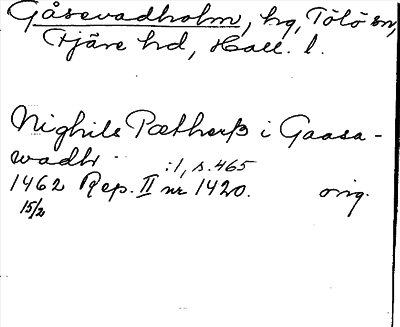 Gåsevadholm, hg, Tölö sn,
Fjäre hd, Hall. l.
Nighils Pætherß i Gaasa-
wadh :1, s. 465
1462 Rep. II nr 1420. orig.
15/2